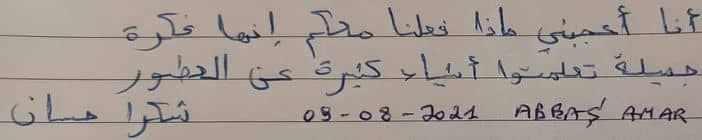 أنا أعجبني ماذا فعلنا معكم إنها فكرة
جميلة تعلمتوا أشياء كثيرة عن العطور
شكرا حسان 09-08-2021 ABBAS AMAR